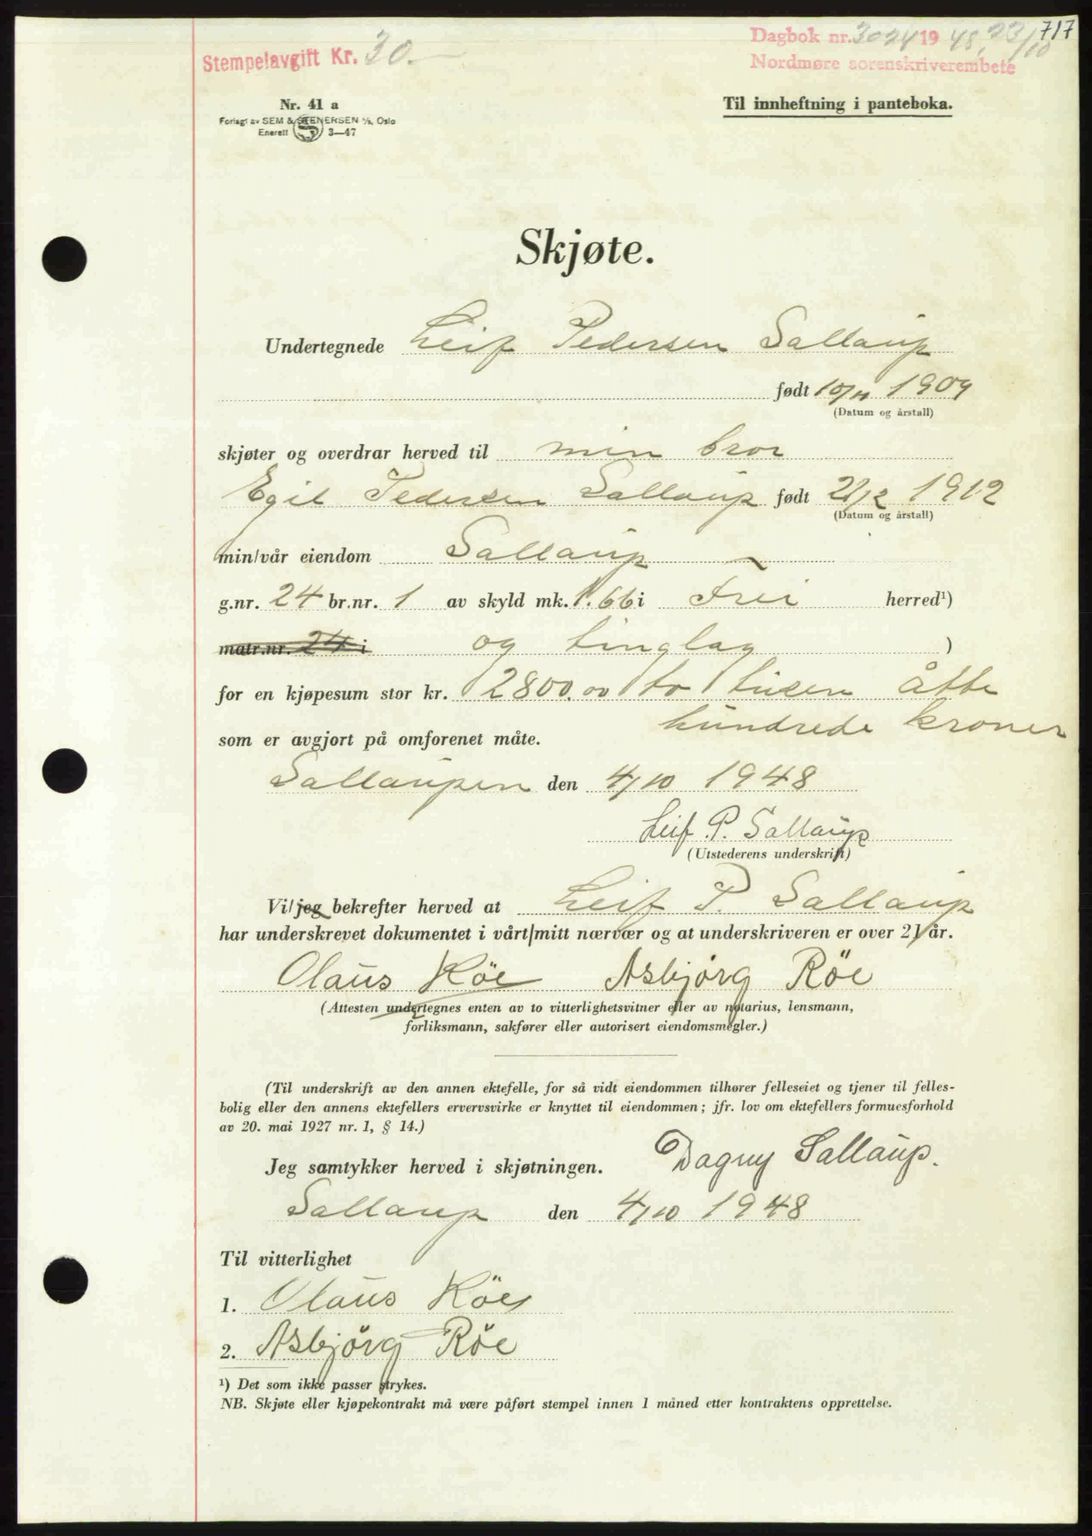 717
Dagbok nr. 3024 19 48, 23/10
Nordmøre sorenskriverembete
Stempelavgift Kr. 30.-
Nr. 41 a
Forlagt av SEM & STENERSEN A/S, Oslo
Enerett 3—47
Til innheftning i panteboka.
Skjøte.
Undertegnede Leif Pedersen Sallaup
født 10/11 1909
(Datum og årstall)
skjøter og overdrar herved til min bror
Egil Pedersen Sallaup født 21/12 1912
(Datum og årstall)
min/vår eiendom Sallaup
g.nr. 24 br.nr. 1 av skyld mk. 1.66 i Frei herred¹)
matr.nr. 24 i og tinglag )
for en kjøpesum stor kr. 2800.00 to tusen åtte
hundrede kroner
som er avgjort på omforenet måte.
Sallaupen den 4/10 1948
Leif P. Sallaup
(Utstederens underskrift)
Vi/jeg bekrefter herved at Leif P. Sallaup
har underskrevet dokumentet i vårt/mitt nærvær og at underskriveren er over 21 år.
Olaus Röe Asbjörg Röe
(Attesten undertegnes enten av to vitterlighetsvitner eller av notarius, lensmann,
forliksmann, sakfører eller autorisert eiendomsmegler.)
(Til underskrift av den annen ektefelle, for så vidt eiendommen tilhører felleseiet og tjener til felles-
bolig eller den annens ektefellers ervervsvirke er knyttet til eiendommen; jfr. lov om ektefellers formuesforhold
av 20. mai 1927 nr. 1, § 14.)
Jeg samtykker herved i skjøtningen. Dagny Sallaup.
Sallaup den 4/10 1948
Til vitterlighet
1. Olaus Röe
2. Asbjörg Röe
¹) Det som ikke passer strykes.
NB. Skjøte eller kjøpekontrakt må være påført stempel innen 1 måned etter kontraktens opprettelse.